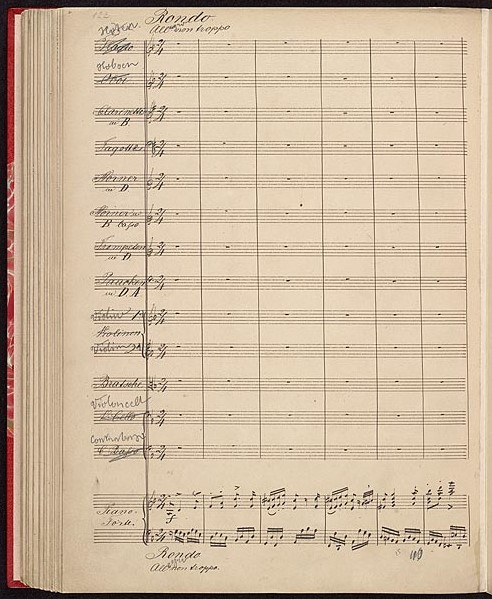 122
Rondo.
Allo non troppo
Hoboen
Clarinette
in B
Fagotte
Hörner
in D
Hörner in
B basso
Trompeten
in D
Pauken
in D A
Violino 1º
Violinen
Violino 2º
Bratsche
Violoncell
Cello
Contrabass
C. Basso
Piano-
Forte.
Rondo
Allo non troppo.